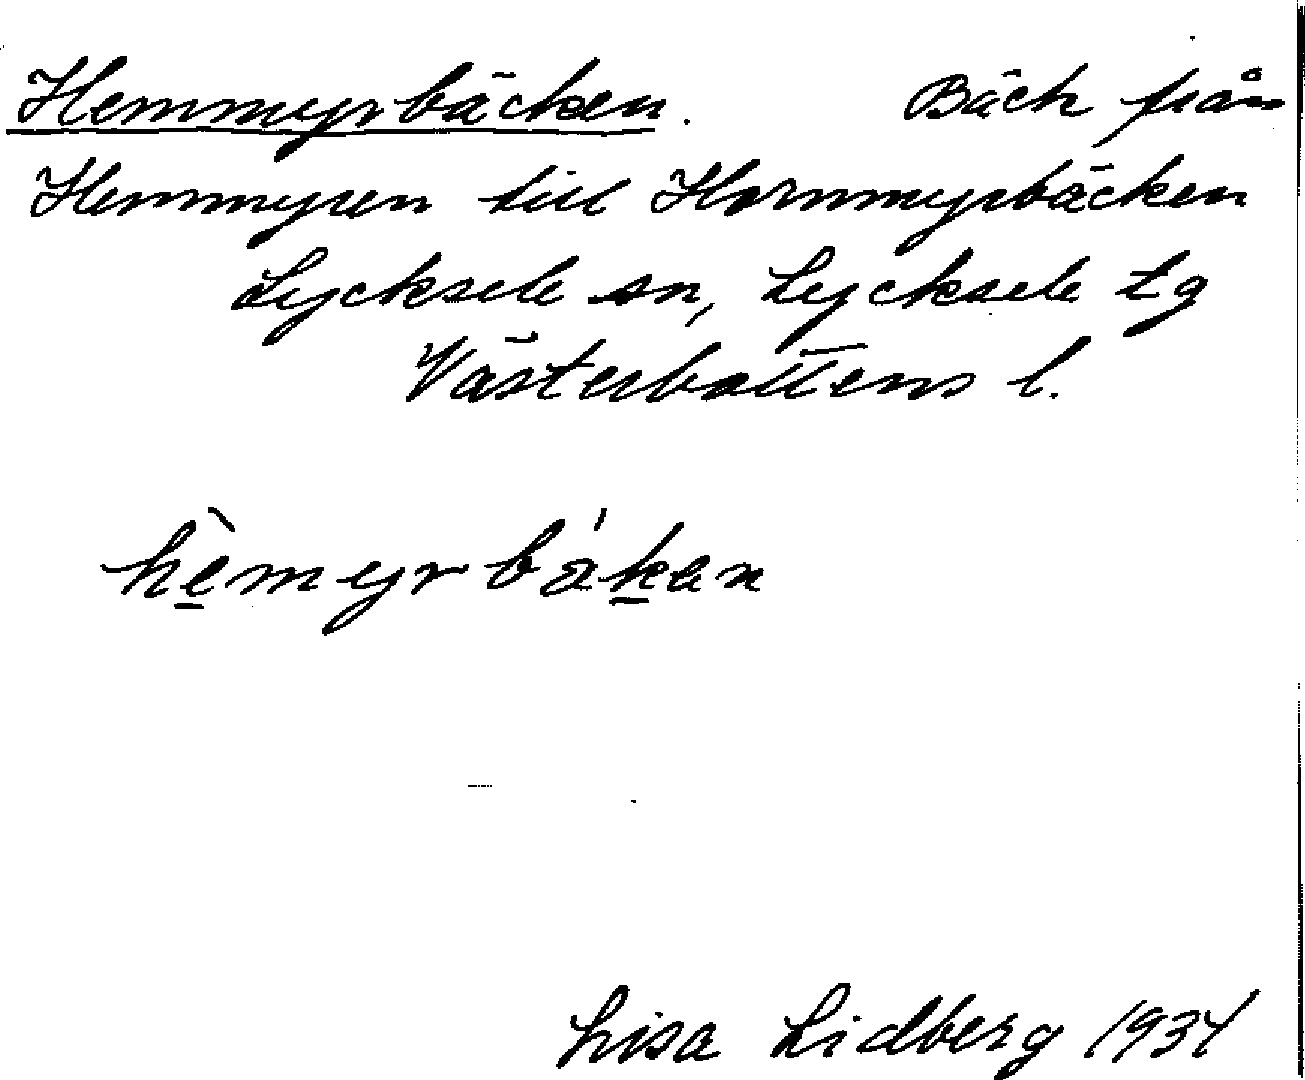 Hemmyrbäcken. Bäck från
Hemmyren till Hornmyrbäcken
Lycksele sn, Lycksele tg
Västerbottens l.
hèmyrbákan
Lisa Lidberg 1934